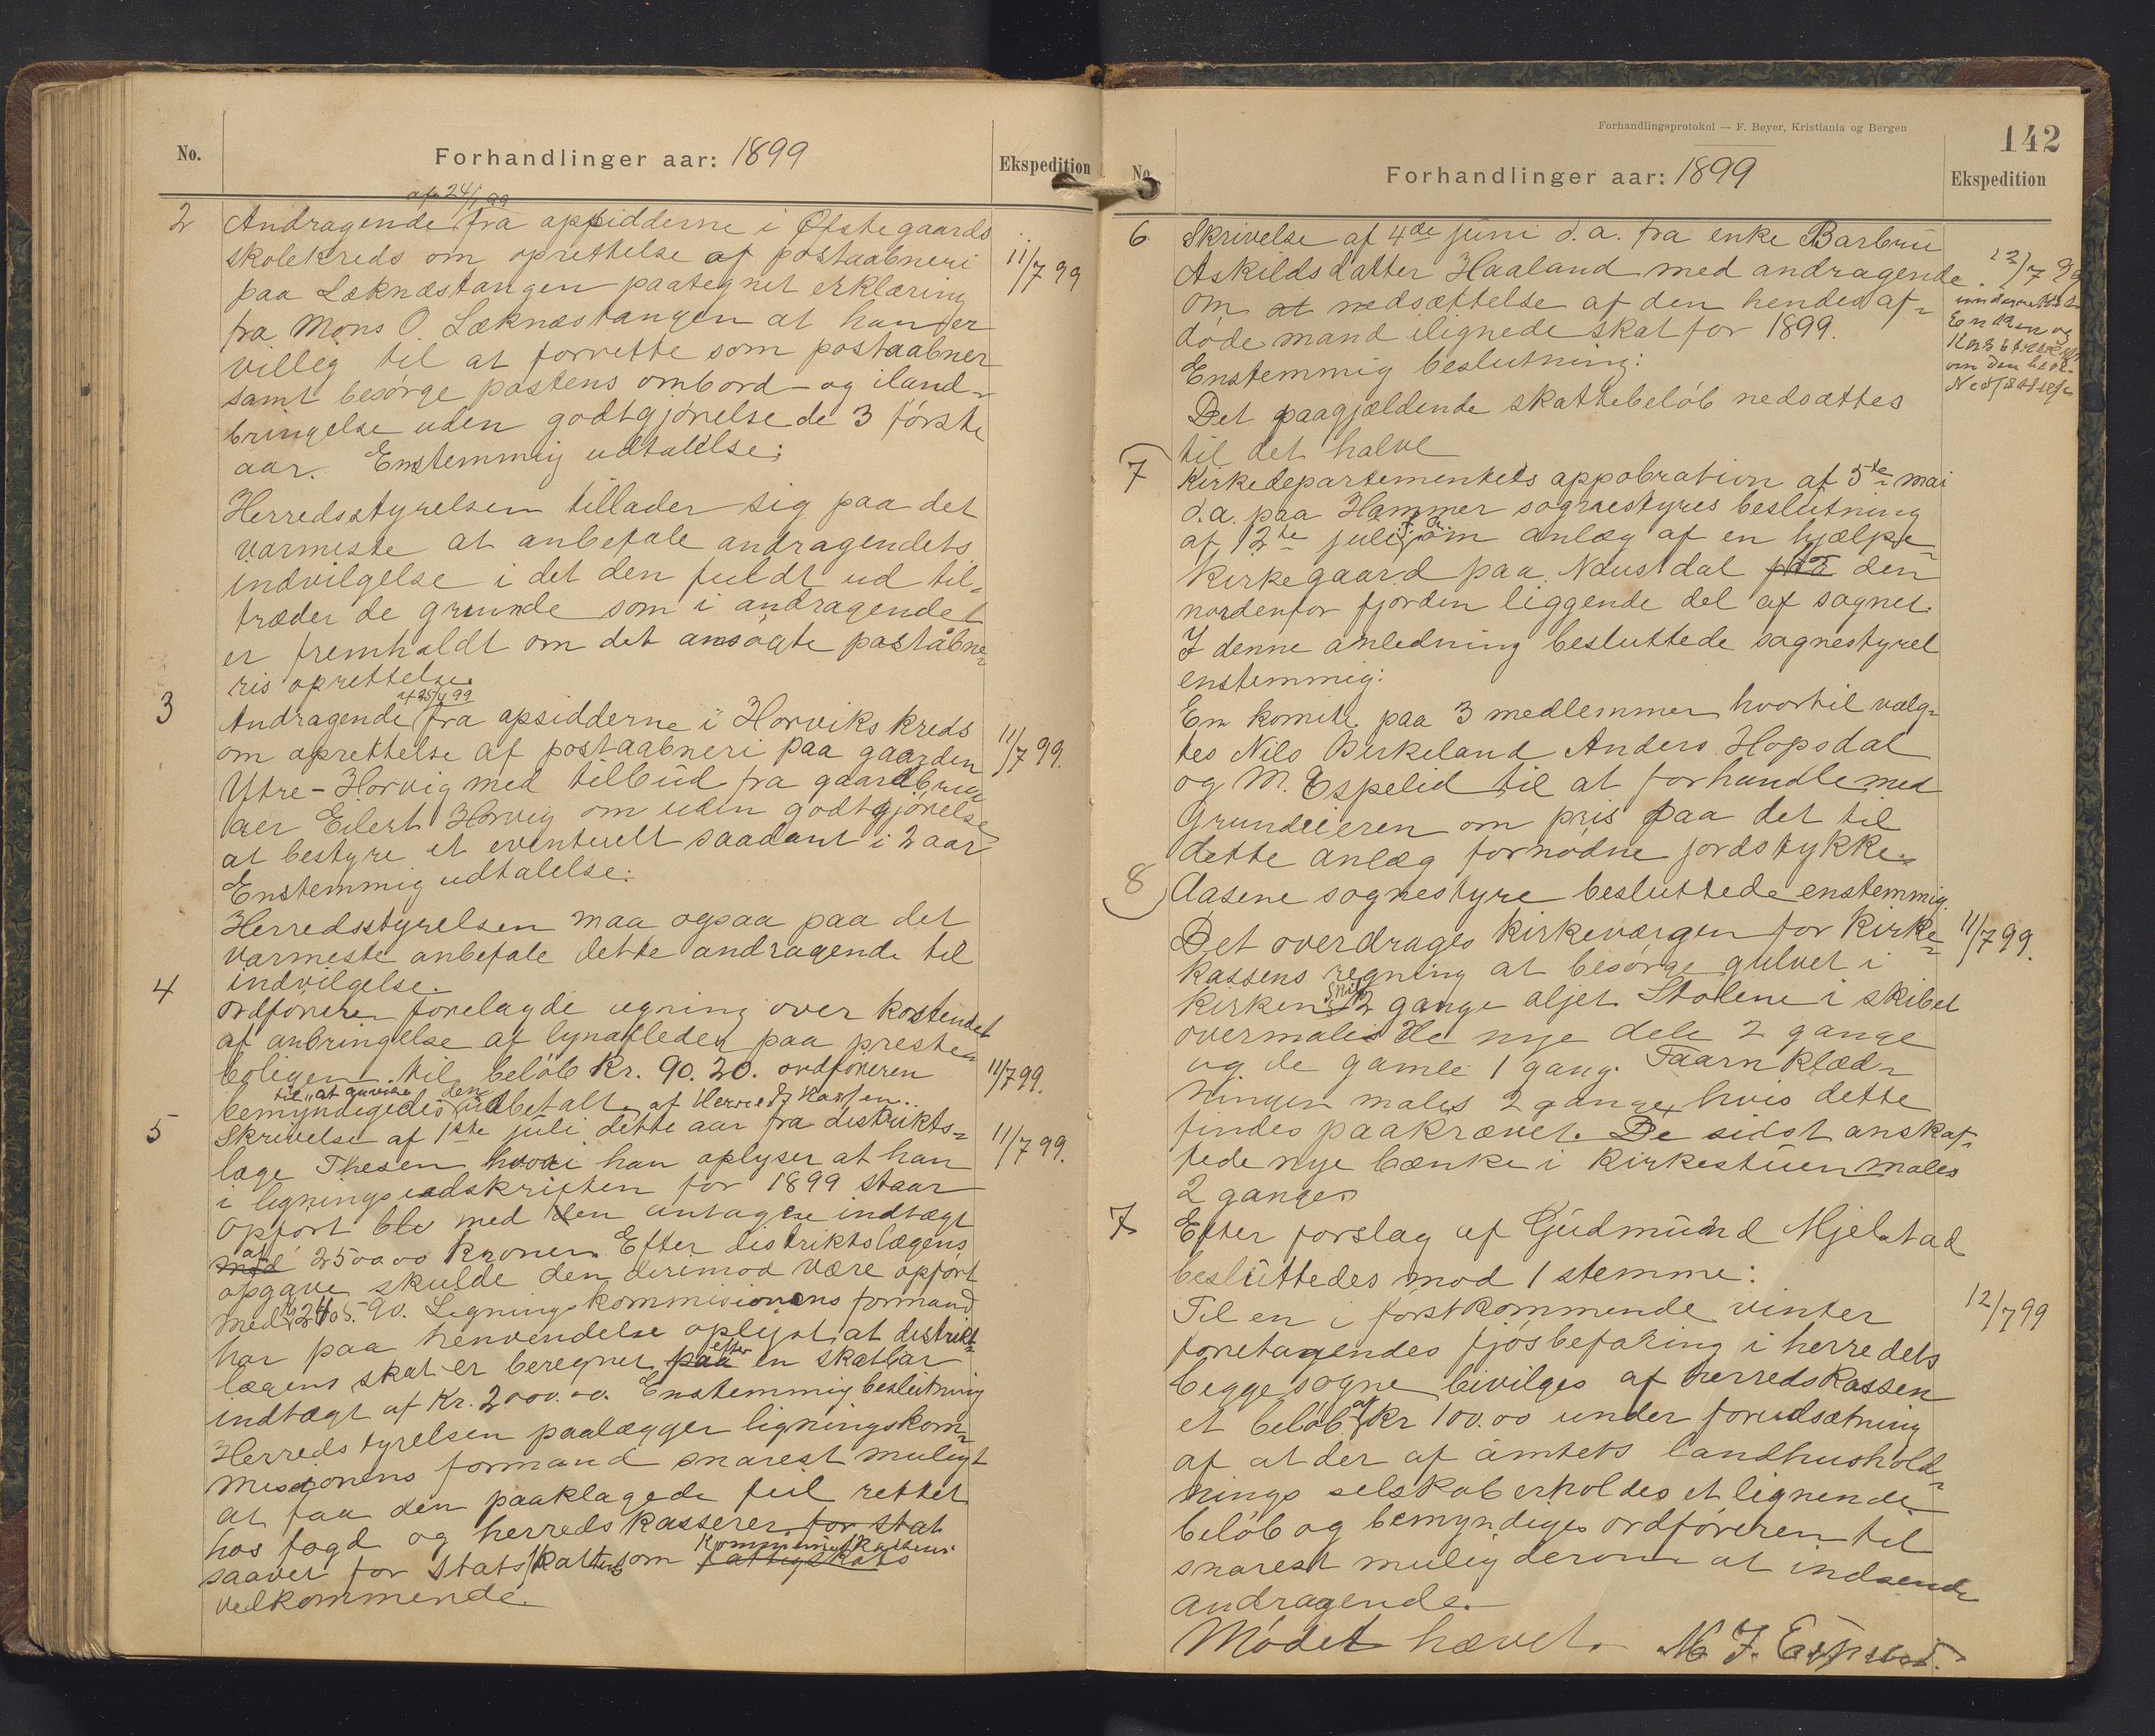 No.
Forhandlinger aar: 1899
Ekspedition
af 24/ 99
2 Andragende fra opsidderne i Øfstegaards
skolekreds om oprettelse af postaabneri 11/7 99
paa Leknæstangen paategnet erklæring
fra Mons O. Leknæstangen at han er
villeg til at forrette som postaabner
samt besörge postens ombord- og iland-
bringelse uden godtgjörelse de 3 förste
aar. Enstemmig udtalelse:
Herredsstyrelsen tillader sig paa det
varmeste at anbefale andragendets
indvilgelse i det den fuldt ud til-
træder de grunde som i andragendet
er fremholdt om det ansögte poståbne-
ris oprettelse.
af 25/4 99
3 Andragende fra opsidderne i Horviks kreds
om oprettelse af postaabneri paa gaarden 11/7 99.
Ytre-Horvig med tilbud fra gaardbrug
aer Eilert Horvig om uden godtgjörelse
at bestyre et eventuelt saadant i 2 aar
Enstemmig udtalelse:
Herredsstyrelsen maa ogsaa paa det
varmeste anbefale dette andragende til
indvilgelse.
4 Ordföreren forelagde regning over kostendet
af anbringelse af lynafleder paa preste-
boligen til belöb Kr. 90.20. ordföreren 11/7 99.
til at anvise den
bemyndigedes udbetalt af Herredskassen..
5 Skrivelse af 1ste juli dette aar fra distrikts- 11/7 99.
læge Thesen hvori han oplyser at han
i ligningsudskriften for 1899 staar
opfört blv med den antagne indtægt
af
med 2500.00 Kroner. Efter distriktslægens
opgave skulde den derimod være opfört
med 2405.90. Ligningskommisionens formand
har paa henvendelse oplyst at distrikt-
efter
lægens skat er beregnet paa en skatbar
indtægt af Kr. 2000.00. Enstemmig beslutning
Herredstyrelsen paalægger ligningskom-
misionens formand snarest muligt
at faa den paaklagede feil rettet
hos fogd og herredskasserer for stat
Kommuneskattens
saavel for Statsskattens som fattigskats
vedkommende.
Forhandlingsprotokol — F. Beyer, Kristiania og Bergen
142
No.
Forhandlinger aar: 1899
Ekspedition
6 Skrivelse af 4de juni d.a. fra enke Barbru
Askildsdatter Haaland med andragende 12/7 99
om at nedsættelse af den hendes af-
döde mand ilignede skat for 1899.
underrettet
Enken og
om den
Nedsættelse
Enstemmig beslutning:
Det paagjældende skattebelöb nedsættes
til det halve
7 Kirkedepartementets appobration af 5te mai
d.a. paa Hammer sognestyres beslutning
f. a.
af 12te juli om anlæg af en hjælpe-
for
kirkegaard paa Naustdal paa den
nordenfor fjorden liggende del af sognet.
I denne anledning besluttede sognestyret
enstemmig:
En komite paa 3 medlemmer hvortil valg-
tes Nils Birkeland Anders Hopsdal
og M. Espelid til at forhandle med
Grundeieren om pris paa det til
dette anlæg fornödne jordstykke.
8 Aasene sognestyre besluttede enstemmig.
Det overdrages kirkeværgen for Kirke- 11/7 99.
kassens regning at besörge gulvet i
Skib
kirken 2 gange oljet. Stolene i skibet
overmales de nye dele 2 gange
og de gamle 1 gang. Taarnklæd-
ningen males 2 gange, hvis dette
findes paakrævet. De sidst anskaf-
fede nye bænke i Kirkestuen males
2 ganger
7 Efter forslag af Gudmund Mjelstad
besluttedes mod 1 stemme:
Til en i förstkommende vinter 12/7 99
foretagendes fjösbefaring i herredets
begge sogne bevilges af herredskassen
af
et belöb Kr 100.00 under forudsætning
af at der af amtets landhushold-
nings selskab erholdes et lignende
belöb og bemyndiges ordföreren til
snarest mulig derom at indsende
andragende.
Mödet hævet. M J. Espelid.